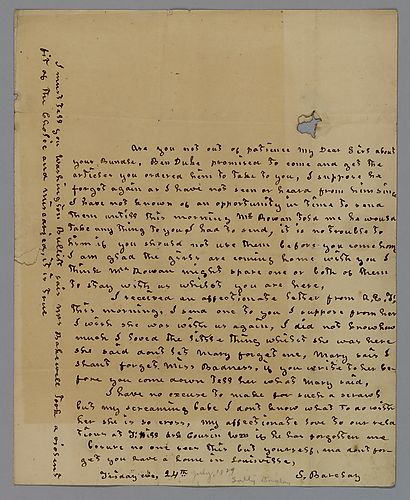 Are you not out of patience my Dear Girl about
your Bundle, Ben Duke promised to come and get the
articles you ordered him to take to you, I suppose he
forgot again as I have not seen or heard from him since
I have not known of an opportunity in time to send
them untill this morning Mr Rowan told me he would
take any thing to you I had to send, it is no trouble to
him if you should not use them before you come home
I am glad the girls are coming home with you I
think Mrs Rowan might spare one or both of them
to stay with us whilst you are here,
I received an affectionate letter from
this morning, I send one to you I suppose from her
I wish she was with us again, I did not know how
much I loved the little thing whilst she was here
she said dont let Mary forget me, Mary says I
shant forget Miss Badness, if you write to her be-
fore you come down tell her what Mary said,
I have no excuse to make for such a scrawl
but my screaming babe I dont know what to do with
her she is so cross, my affectionate love to our rela
tions at and Cousin Wm if he has forgotten me
be sure no one sees this but yourself, and dont for
get you have a home in Louisville,
Friday eve, 24th July, S. Barclay
I must tell you Washington Bullitt says Mrs Bakewell took a violent
fit of the Cholic and miscarried, is it true